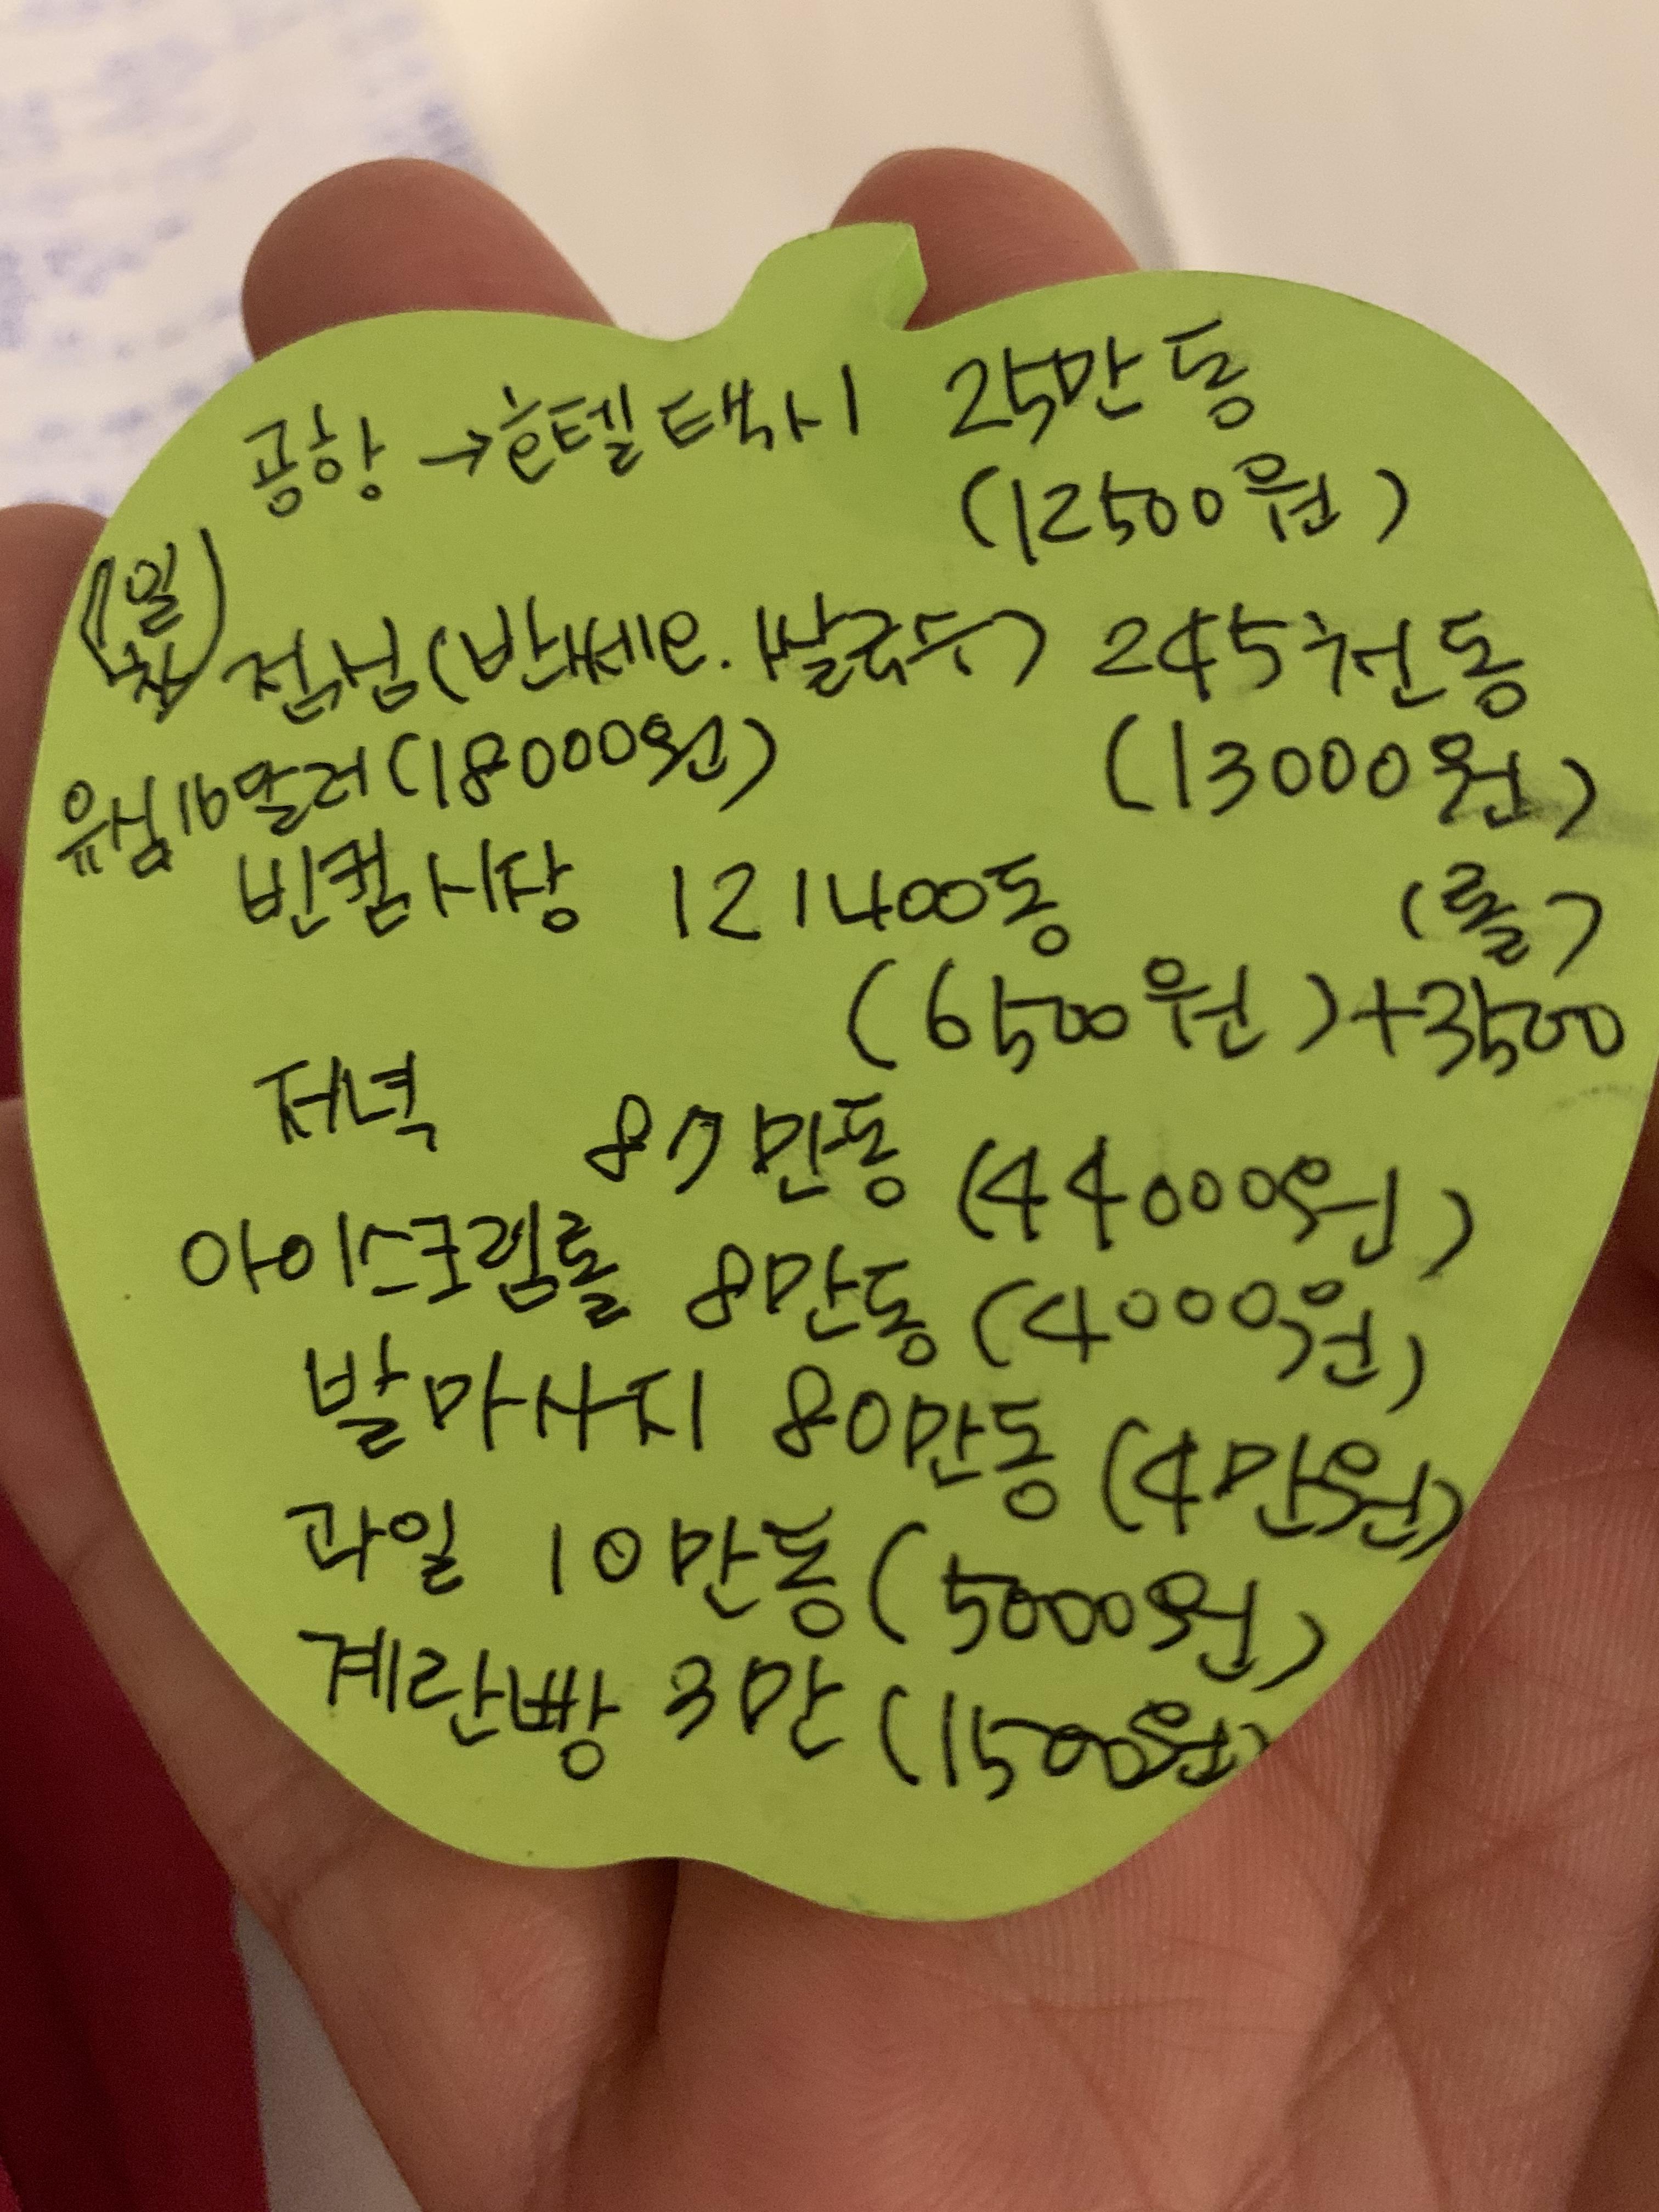 공항 → 호텔 택시 25만동
(12500원)
(일)
점심(반쎄오. 쌀국수) 245천동
(13000원)
유심16달러(18000원)
빈컴시장 121400동
(롤)
(6500원)+3500
저녁 87만동 (44000원)
아이스크림롤 8만동 (4000원)
발마사지 80만동 (4만원)
과일 10만동 (5000원)
계란빵 3만 (1500원)